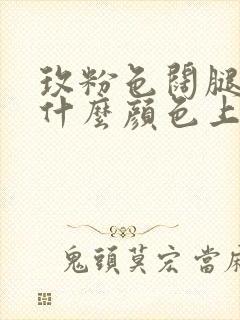 玫粉色闊腿
什麼顏色上
鬼頭莫宏 當麻